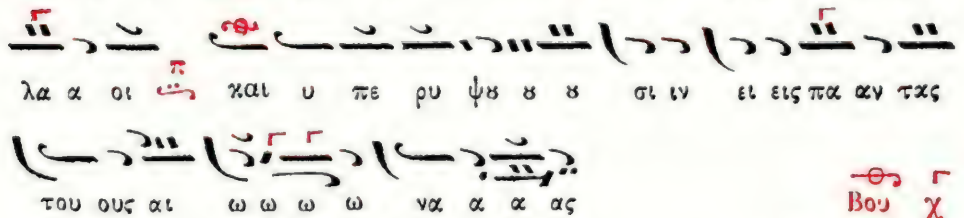 λα α οι π και υ πε ρυ ψȣ ȣ ȣ σι ιν ει εις πα αν τας
του ους αι ω ω ω ω να α α ας Βου χ